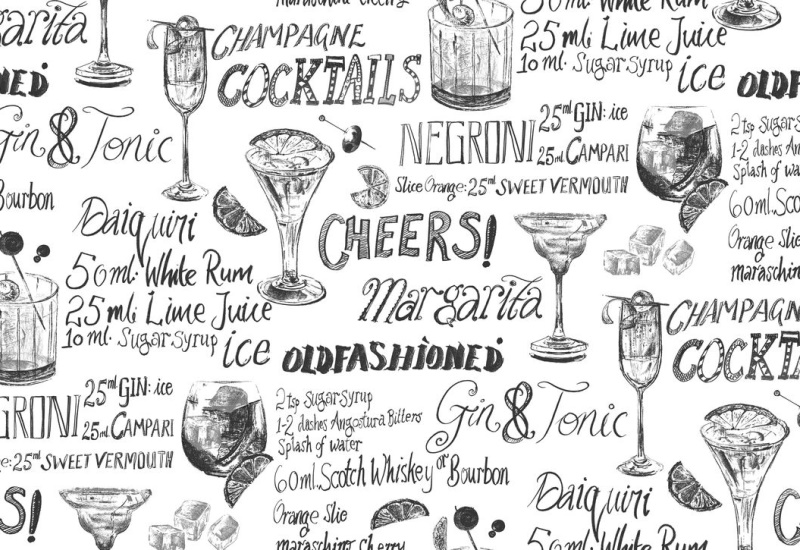 maraschino cherry
50ml White Rum
arita
CHAMPAGNE
COCKTAILS
25ml Lime Juice
10 ml. Sugar syrup ice
NED
OLDF
Gin & Tonic
NEGRONI
25ml GIN: ice
25ml CAMPARI
Slice Orange: 25ml SWEET VERMOUTH
2tsp Sugar S
1-2 dashes An
Splash of wa
Bourbon
60ml. Sco
Orange Slic
maraschin
Daiquiri
50ml. White Rum
25ml. Lime Juice
10 ml. Sugar syrup ice
CHEERS!
Margarita
CHAMPAGN
COCKTA
OLDFASHIONED
GRONI
25ml GIN: ice
25ml CAMPARI
e: 25ml SWEET VERMOUTH
2tsp Sugar syrup
1-2 dashes Angostura Bitters
Splash of water
60ml. Scotch Whiskey or Bourbon
Orange Slie
maraschino cherry
Gin & Tonic
S!
Daiquiri
50ml. White Rum
C